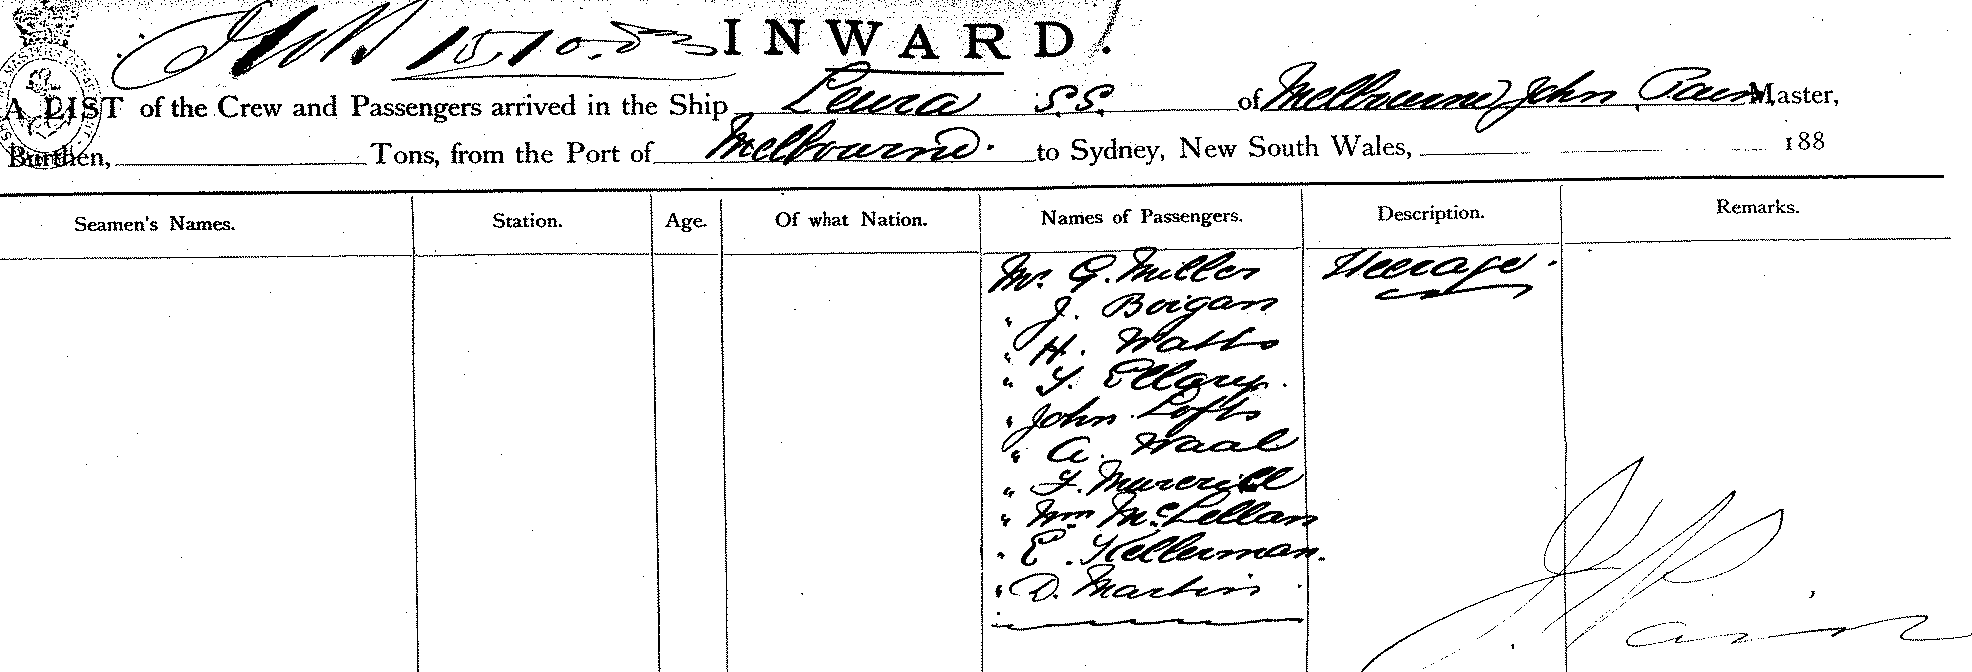 15.10.83 INWARD.
A LIST of the Crew and Passengers arrived in the Ship Leura S.S. of Melbourne, John Pain, Master,
Burthen, Tons, from the Port of Melbourne. to Sydney, New South Wales, 188
Seamen's Names. Station. Age. Of what Nation. Names of Passengers. Description. Remarks.
Mr. G. Miller Steerage.
" J. Boigan
" H. Watts
" Y. Ellary.
" John Lofts
" A. Waal
" F. Murcrill
" Wm McLellan
" E. Kellerman.
" D. Martin
J Pain